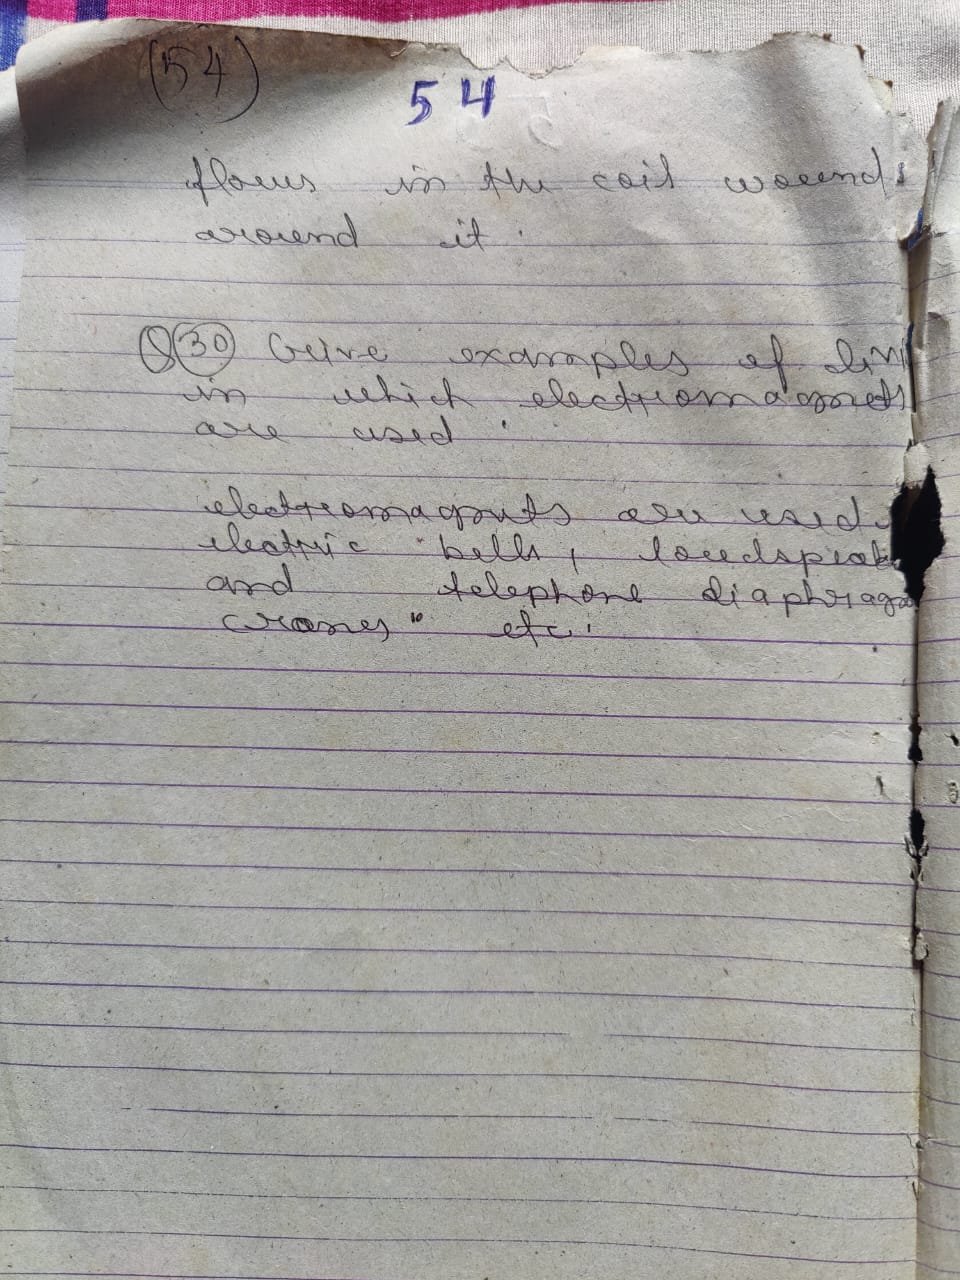 (54)
54
flows in the coil wound
around it.
Q 30 Give examples of
in which electromagnets
are used.
electromagnets are used
electric bells, loudspeak
and telephone diaphrag
cranes" etc.